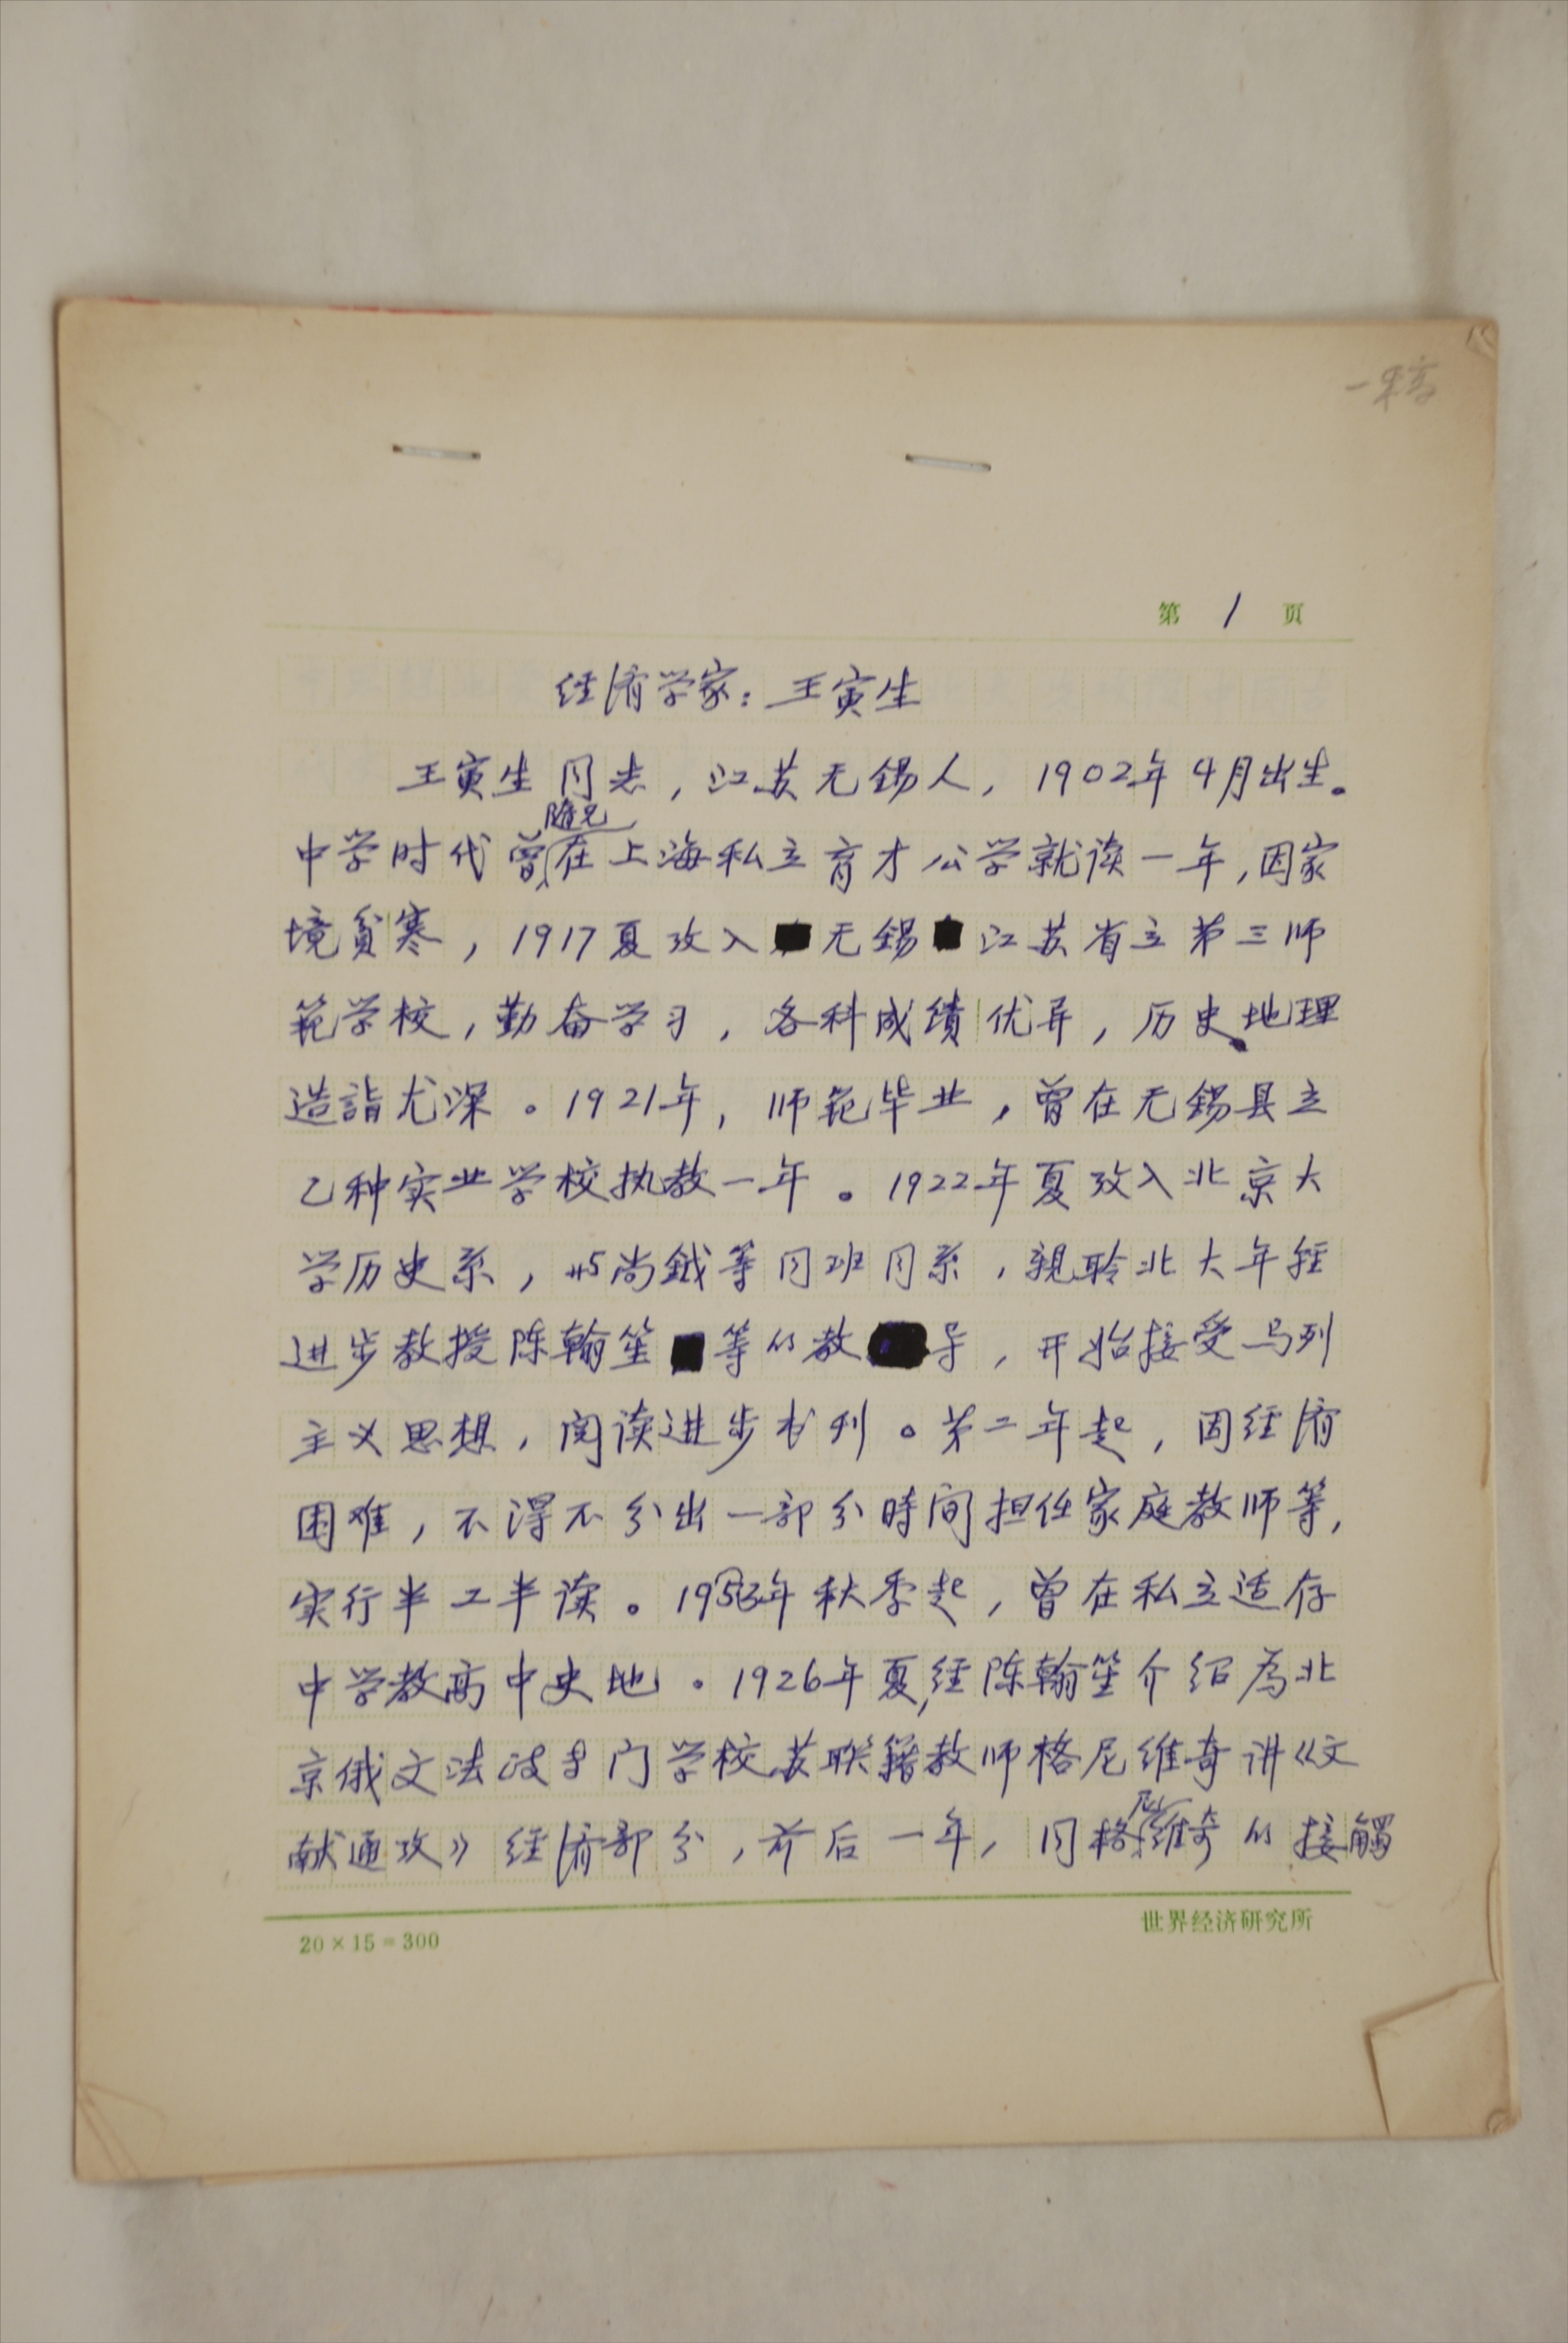 一稿
第 1 页
经济学家：王寅生
王寅生同志，江苏无锡人，1902年4月出生。
随兄
中学时代曾在上海私立育才公学就读一年，因家
境贫寒，1917夏考入无锡江苏省立第三师
范学校，勤奋学习，各科成绩优异，历史、地理
造詣尤深。1921年，师范毕业，曾在无锡县立
乙种实业学校执教一年。1922年夏攷入北京大
学历史系，与尚鉞等同班同系，親聆北大年轻
进步教授陈翰笙等的教导，开始接受马列
主义思想，阅读进步书刊。第二年起，因经济
困难，不得不分出一部分時间担任家庭教师等，
实行半工半读。19年秋季起，曾在私立适存
中学教高中史地。1926年夏，经陈翰笙介绍为北
京俄文法政专门学校苏联籍教师格尼维奇讲《文
尼
献通攷》经济部分，前后一年，同格维奇的接觸
20×15=300
世界经济研究所